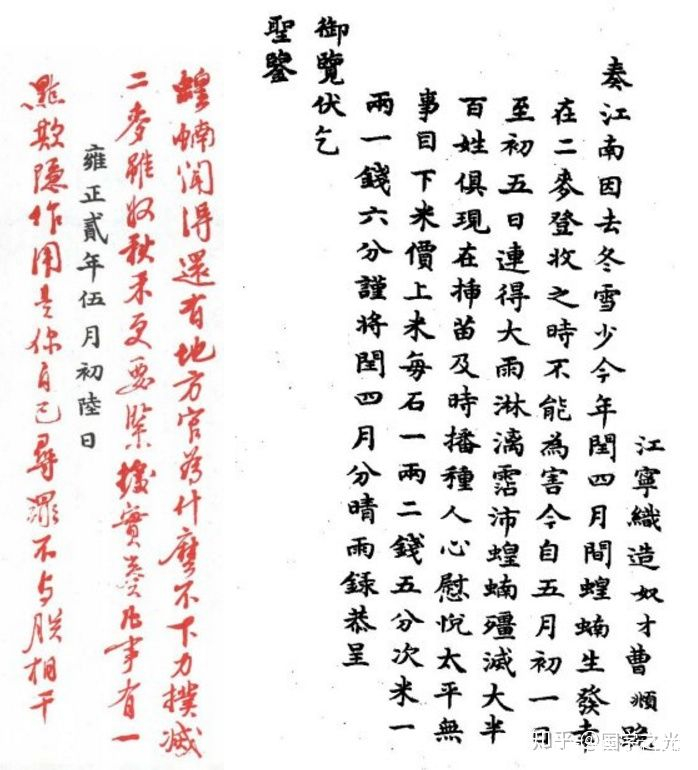 江寧織造奴才曹頫跪
奏江南因去冬雪少今年閏四月間蝗蝻生發幸
在二麥登收之時不能為害今自五月初一日
至初五日連得大雨淋漓霑沛蝗蝻殭滅大半
百姓俱現在揷苗及時播種人心慰悅太平無
事目下米價上米每石一兩二錢五分次米一
兩一錢六分謹將閏四月分晴雨錄恭呈
御覽伏乞
聖鑒
蝗蝻聞得還有地方官為什麼不下力撲滅
二麥雖收秋禾更要緊據實奏凡事有一
雍正貳年伍月初陸日
點欺隱作用是你自己尋罪不与朕相干
知乎 @国学之光